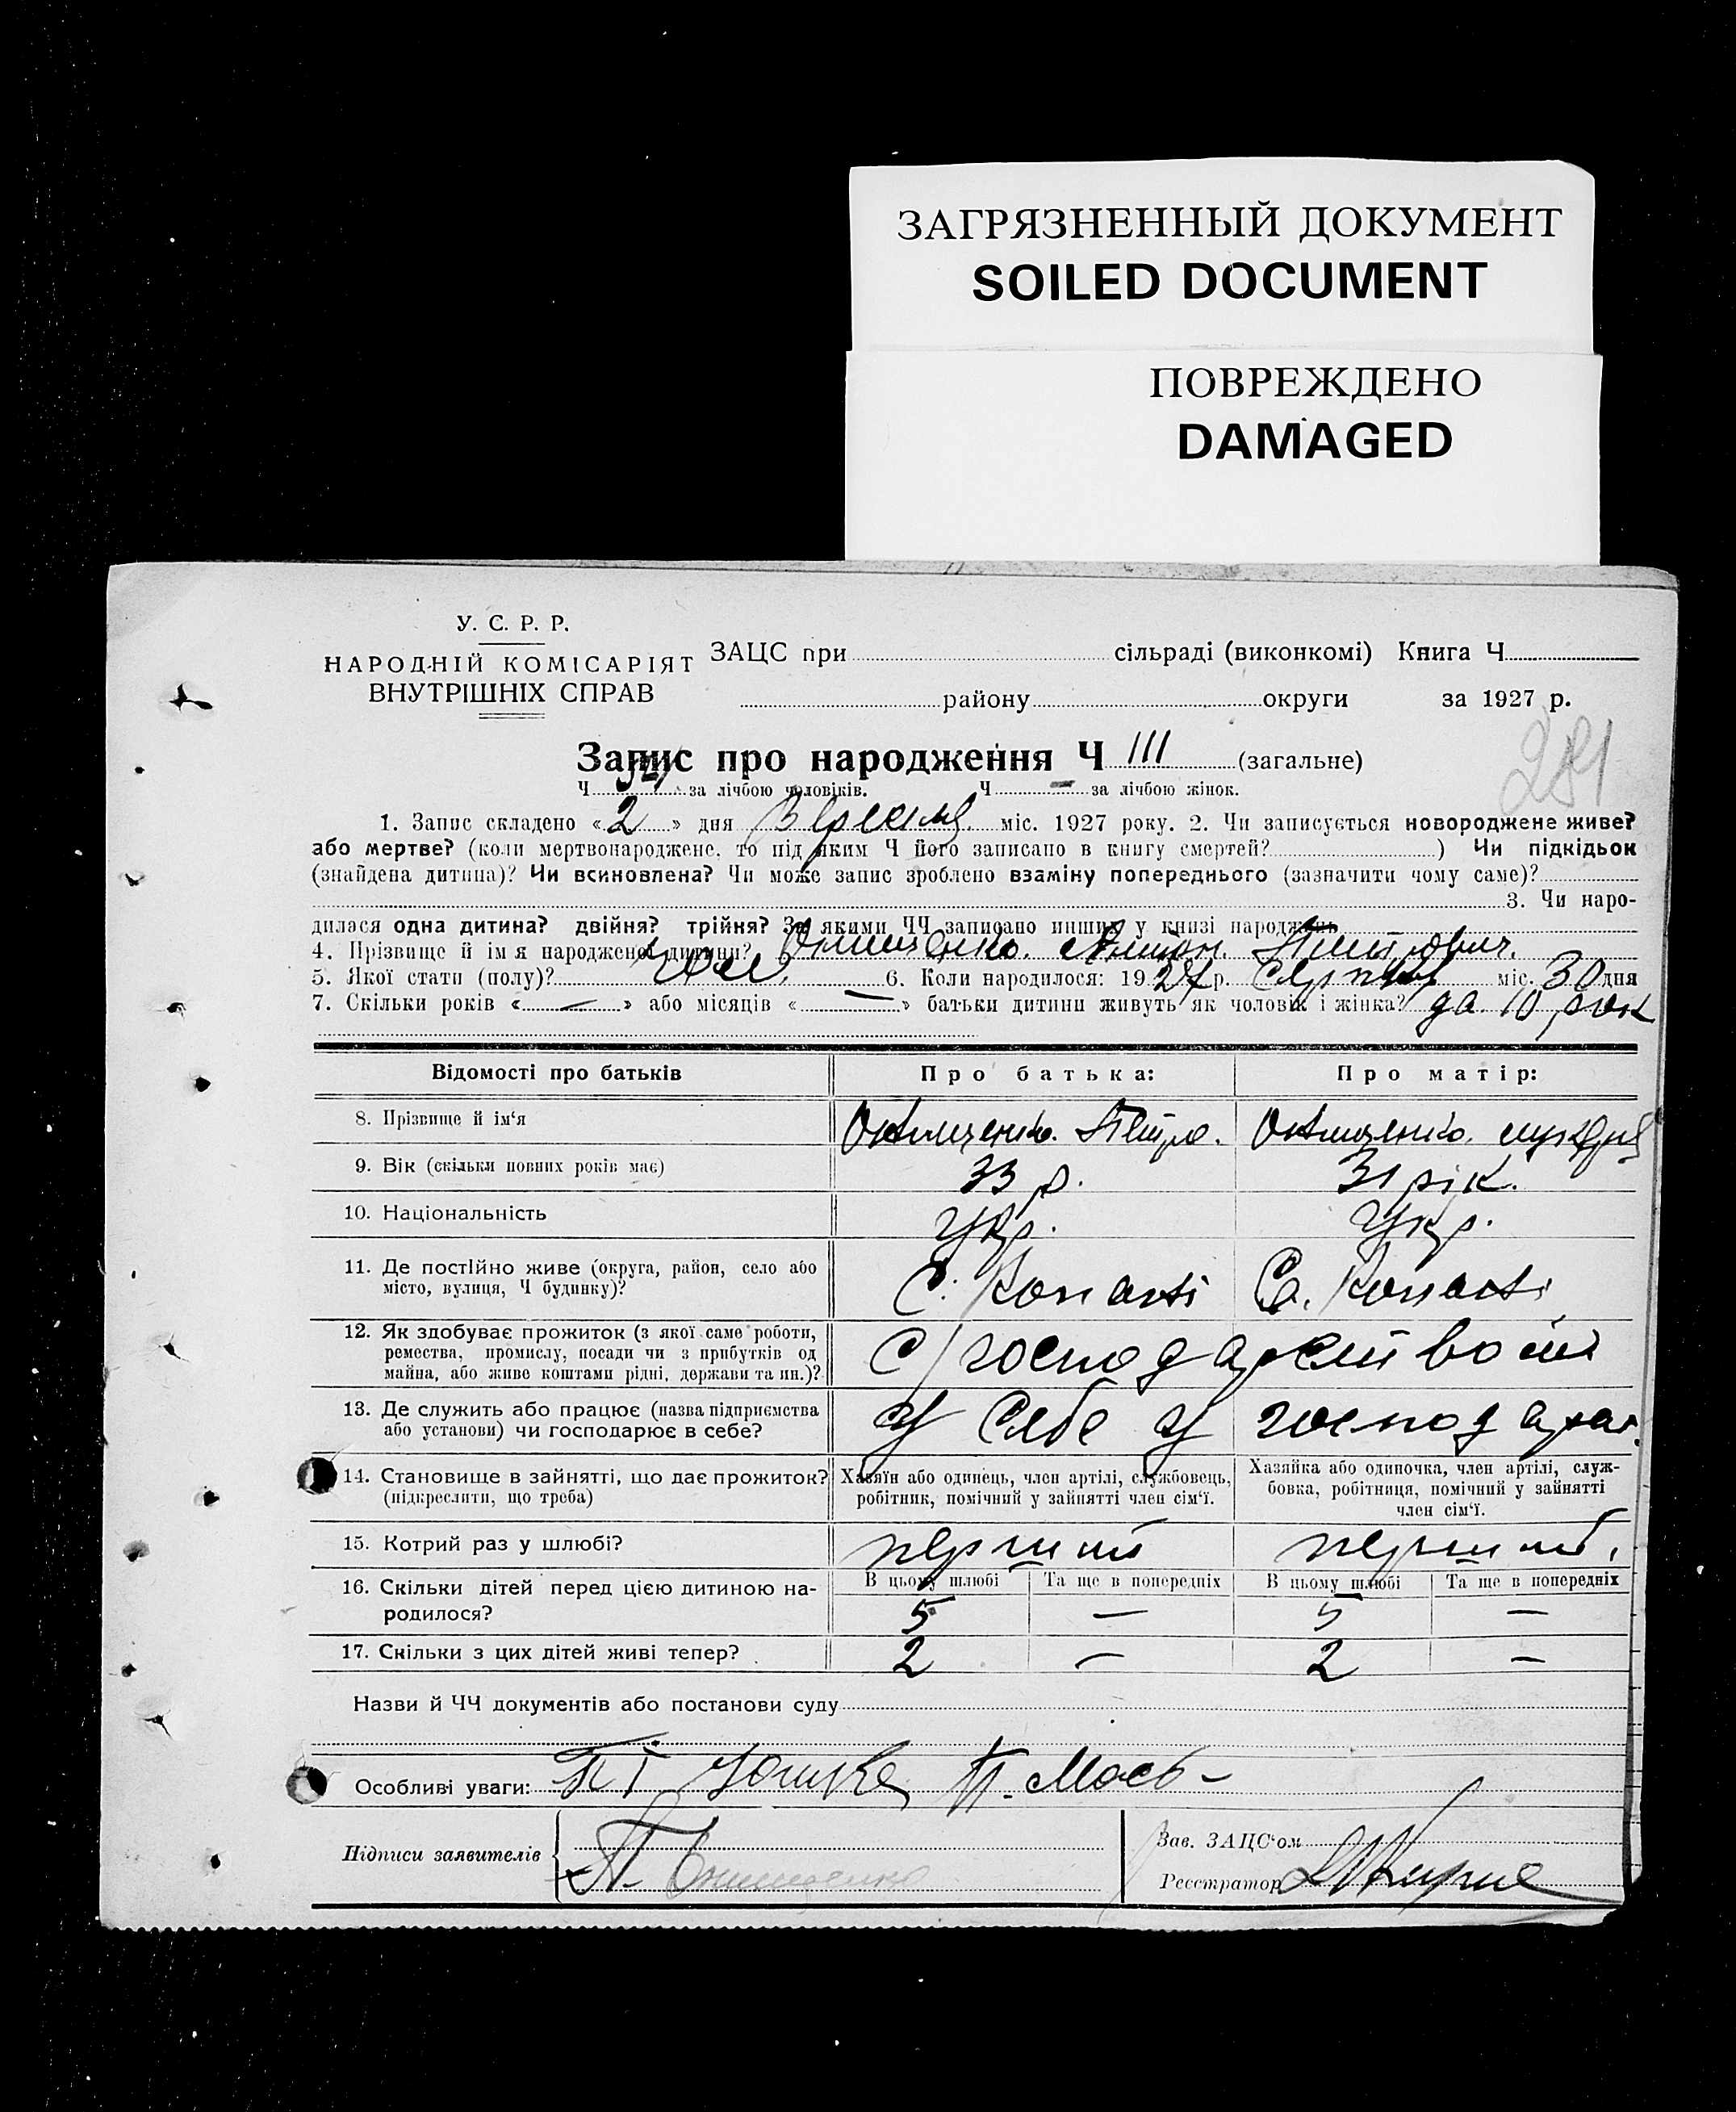 ЗАГРЯЗНЕННЫЙ ДОКУМЕНТ
SOILED DOCUMENT
ПОВРЕЖДЕНО
DAMAGED
У. С. Р. Р.
НАРОДНІЙ КОМІСАРІЯТ
ВНУТРІШНІХ СПРАВ
ЗАЦС при сільраді (виконкомі) Книга Ч
району округи за 1927 р.
281
Запис про народження Ч 111 (загальне)
Ч за лічбою чоловіків. Ч — за лічбою жінок.
1. Запис складено «2» дня Вересня міс. 1927 року. 2. Чи записується новороджене живе?
або мертве? (коли мертвонароджене, то під яким Ч його записано в книгу смертей? ) Чи підкідьок
(знайдена дитина)? Чи всиновлена? Чи може запис зроблено взаміну попереднього (зазначити чому саме)?
3. Чи наро-
дилася одна дитина? двійня? трійня? За якими ЧЧ записано инших у книзі народжень
4. Прізвище й ім я народженої дитини? Онищенко. Антон. Петрович.
5. Якої стати (полу)? чол. 6. Коли народилося: 1927 р. Серпня міс. 30 дня
7. Скільки років «—» або місяців «—» батьки дитини живуть як чоловік і жінка? 10 рок
Відомості про батьків Про батька: Про матір:
8. Прізвище й ім'я Онищенко. Петро. Онищенко.
9. Вік (скільки повних років має) 33 р. 31 рік.
10. Національність Укр. Укр.
11. Де постійно живе (округа, район, село або
місто, вулиця, Ч будинку)? С. С.
12. Як здобуває прожиток (з якої саме роботи,
ремества, промислу, посади чи з прибутків од
майна, або живе коштами рідні, держави та ин.)? С/господарством
13. Де служить або працює (назва підприємства
або установи) чи господарює в себе? У себе у господар.
14. Становище в зайнятті, що дає прожиток?
(підкреслити, що треба)
Хазяїн або одинець, член артілі, службовець,
робітник, помічний у зайнятті член сім'ї.
Хазяйка або одиночка, член артілі, служ-
бовка, робітниця, помічний у зайнятті
член сім'ї.
15. Котрий раз у шлюбі? перший перший.
16. Скільки дітей перед цією дитиною на-
родилося?
В цьому шлюбі Та ще в попередніх В цьому шлюбі Та ще в попередніх
5 — 5 —
17. Скільки з цих дітей живі тепер? 2 — 2 —
Назви й ЧЧ документів або постанови суду
Особливі уваги:
Підписи заявителів П. Онищенко
Зав. ЗАЦС'ом
Реєстратор